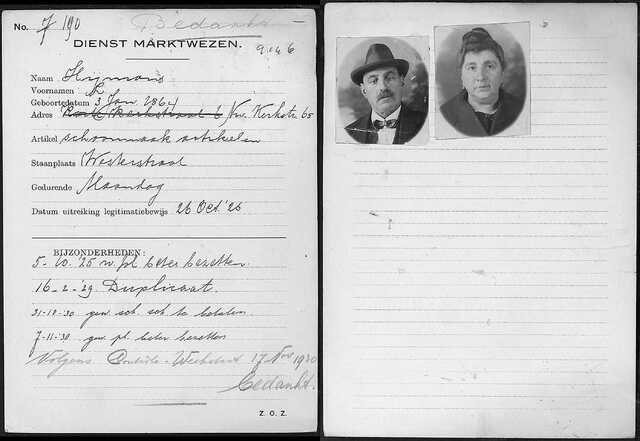 No. 7/190 Bedankt
DIENST MARKTWEZEN.
Naam Hijmans
Voornamen
Geboortedatum 3 Jan 1864
Adres Nw. Kerkstr 65
Artikel schoonmaak artikelen
Staanplaats Westerstraat
Gedurende Maandag
Datum uitreiking legitimatiebewijs 26 Oct. '26
BIJZONDERHEDEN:
5-10-'25 w. pl beter bezetten
16-2-'29 Duplicaat.
31-10-30 gew. sch. te betalen
7-11-'30 gew. pl. beter bezetten
Volgens Controle-Weekstaat 17 Nov 1930
bedankt.
Z. O. Z.